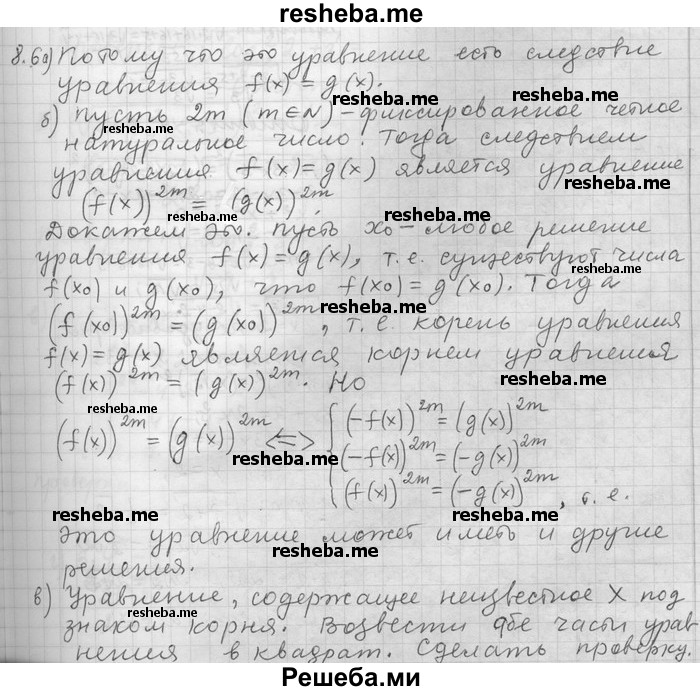 resheba.me
8.6а) Потому что это уравнение есть следствие
уравнения f(x) = g(x).
resheba.me
б) Пусть 2m (m∈N) – фиксированное четное
resheba.me
натуральное число. Тогда следствием
уравнения f(x) = g(x) является уравнение
resheba.me
(f(x))^2m = (g(x))^2m.
resheba.me
Докажем это. Пусть x₀ – любое решение
уравнения f(x) = g(x), т.е. существуют числа
resheba.me resheba.me
f(x₀) и g(x₀), что f(x₀) = g(x₀). Тогда
(f(x₀))^2m = (g(x₀))^2m, т.е. корень уравнения
resheba.me
f(x) = g(x) является корнем уравнения
(f(x))^2m = (g(x))^2m. Но
resheba.me
resheba.me
(f(x))^2m = (g(x))^2m <=> { (-f(x))^2m = (g(x))^2m
(-f(x))^2m = (-g(x))^2m
resheba.me
(f(x))^2m = (-g(x))^2m, т.е.
resheba.me resheba.me
это уравнение может иметь и другие
resheba.me
решения.
resheba.me
в) Уравнение, содержащее неизвестное X под
resheba.me
знаком корня. Возвести обе части урав
resheba.me
нения в квадрат. Сделать проверку.
Решеба.ми